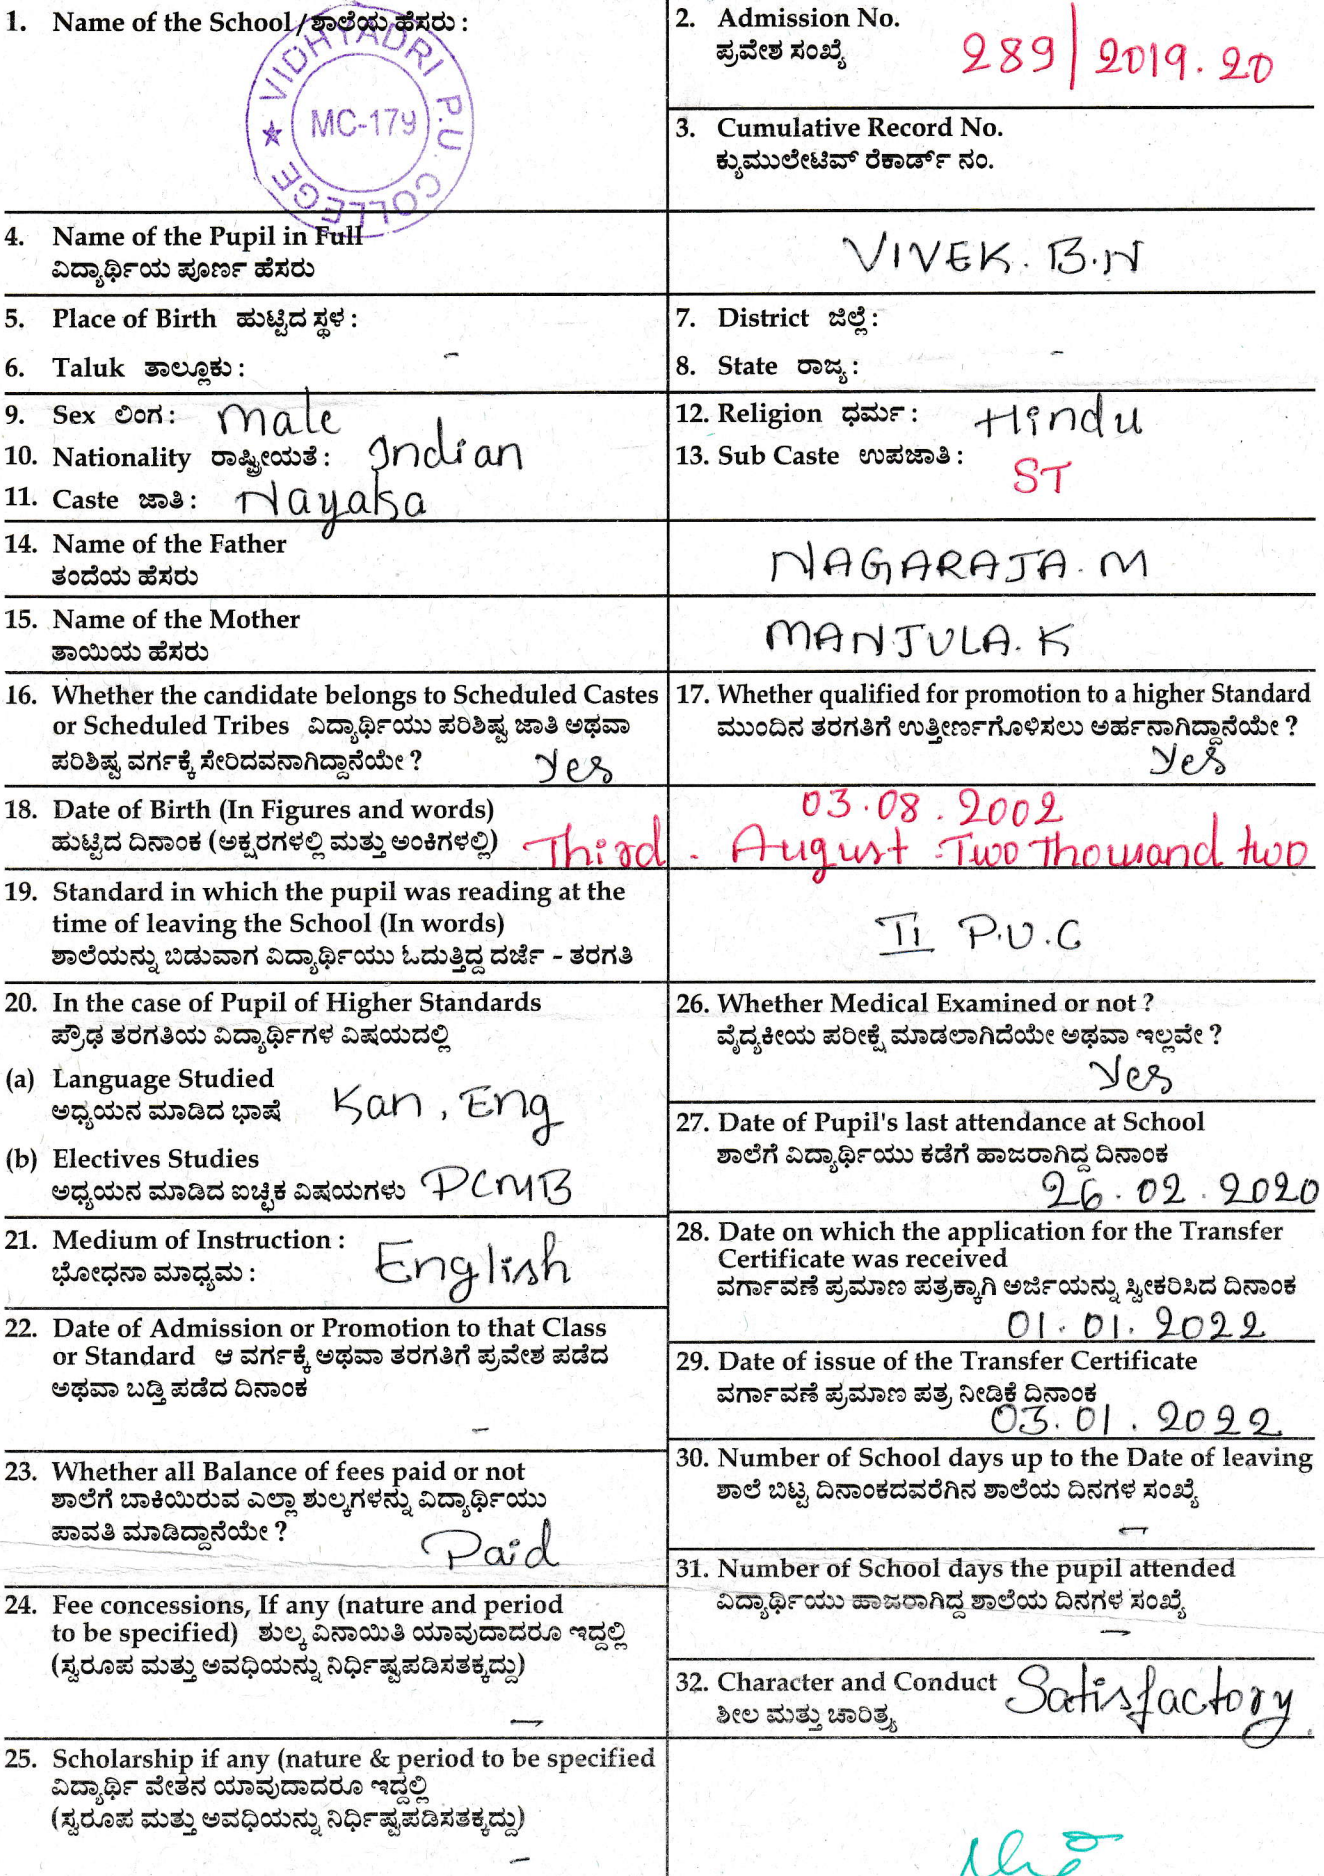 1. Name of the School/ಶಾಲೆಯ ಹೆಸರು :
★ VIDHYADRI P.U. COLLEGE
MC-179
2. Admission No.
ಪ್ರವೇಶ ಸಂಖ್ಯೆ 289/2019.20
3. Cumulative Record No.
ಕ್ಯುಮುಲೇಟಿವ್ ರೆಕಾರ್ಡ್ ನಂ.
4. Name of the Pupil in Full
ವಿದ್ಯಾರ್ಥಿಯ ಪೂರ್ಣ ಹೆಸರು
VIVEK. B.N
5. Place of Birth ಹುಟ್ಟಿದ ಸ್ಥಳ :
6. Taluk ತಾಲ್ಲೂಕು : -
7. District ಜಿಲ್ಲೆ :
8. State ರಾಜ್ಯ : -
9. Sex ಲಿಂಗ : male
10. Nationality ರಾಷ್ಟ್ರೀಯತೆ : Indian
11. Caste ಜಾತಿ : Nayaka
12. Religion ಧರ್ಮ : Hindu
13. Sub Caste ಉಪಜಾತಿ : ST
14. Name of the Father
ತಂದೆಯ ಹೆಸರು
NAGARAJA. M
15. Name of the Mother
ತಾಯಿಯ ಹೆಸರು
MANJULA. K
16. Whether the candidate belongs to Scheduled Castes
or Scheduled Tribes ವಿದ್ಯಾರ್ಥಿಯು ಪರಿಶಿಷ್ಟ ಜಾತಿ ಅಥವಾ
ಪರಿಶಿಷ್ಟ ವರ್ಗಕ್ಕೆ ಸೇರಿದವನಾಗಿದ್ದಾನೆಯೇ ? Yes
17. Whether qualified for promotion to a higher Standard
ಮುಂದಿನ ತರಗತಿಗೆ ಉತ್ತೀರ್ಣಗೊಳಿಸಲು ಅರ್ಹನಾಗಿದ್ದಾನೆಯೇ ?
Yes
18. Date of Birth (In Figures and words) 03.08.2002
ಹುಟ್ಟಿದ ದಿನಾಂಕ (ಅಕ್ಷರಗಳಲ್ಲಿ ಮತ್ತು ಅಂಕಿಗಳಲ್ಲಿ) Third - August - Two Thousand two
19. Standard in which the pupil was reading at the
time of leaving the School (In words)
ಶಾಲೆಯನ್ನು ಬಿಡುವಾಗ ವಿದ್ಯಾರ್ಥಿಯು ಓದುತ್ತಿದ್ದ ದರ್ಜೆ - ತರಗತಿ
II P.U.C
20. In the case of Pupil of Higher Standards
ಪ್ರೌಢ ತರಗತಿಯ ವಿದ್ಯಾರ್ಥಿಗಳ ವಿಷಯದಲ್ಲಿ
(a) Language Studied
ಅಧ್ಯಯನ ಮಾಡಿದ ಭಾಷೆ Kan, Eng
(b) Electives Studies
ಅಧ್ಯಯನ ಮಾಡಿದ ಐಚ್ಛಿಕ ವಿಷಯಗಳು PCMB
21. Medium of Instruction :
ಭೋಧನಾ ಮಾಧ್ಯಮ : English
22. Date of Admission or Promotion to that Class
or Standard ಆ ವರ್ಗಕ್ಕೆ ಅಥವಾ ತರಗತಿಗೆ ಪ್ರವೇಶ ಪಡೆದ
ಅಥವಾ ಬಡ್ತಿ ಪಡೆದ ದಿನಾಂಕ
-
23. Whether all Balance of fees paid or not
ಶಾಲೆಗೆ ಬಾಕಿಯಿರುವ ಎಲ್ಲಾ ಶುಲ್ಕಗಳನ್ನು ವಿದ್ಯಾರ್ಥಿಯು
ಪಾವತಿ ಮಾಡಿದ್ದಾನೆಯೇ ? Paid
24. Fee concessions, If any (nature and period
to be specified) ಶುಲ್ಕ ವಿನಾಯಿತಿ ಯಾವುದಾದರೂ ಇದ್ದಲ್ಲಿ
(ಸ್ವರೂಪ ಮತ್ತು ಅವಧಿಯನ್ನು ನಿರ್ಧಿಷ್ಟಪಡಿಸತಕ್ಕದ್ದು)
-
25. Scholarship if any (nature & period to be specified
ವಿದ್ಯಾರ್ಥಿ ವೇತನ ಯಾವುದಾದರೂ ಇದ್ದಲ್ಲಿ
(ಸ್ವರೂಪ ಮತ್ತು ಅವಧಿಯನ್ನು ನಿರ್ಧಿಷ್ಟಪಡಿಸತಕ್ಕದ್ದು)
-
26. Whether Medical Examined or not ?
ವೈದ್ಯಕೀಯ ಪರೀಕ್ಷೆ ಮಾಡಲಾಗಿದೆಯೇ ಅಥವಾ ಇಲ್ಲವೇ ?
Yes
27. Date of Pupil's last attendance at School
ಶಾಲೆಗೆ ವಿದ್ಯಾರ್ಥಿಯು ಕಡೆಗೆ ಹಾಜರಾಗಿದ್ದ ದಿನಾಂಕ
26.02.2020
28. Date on which the application for the Transfer
Certificate was received
ವರ್ಗಾವಣೆ ಪ್ರಮಾಣ ಪತ್ರಕ್ಕಾಗಿ ಅರ್ಜಿಯನ್ನು ಸ್ವೀಕರಿಸಿದ ದಿನಾಂಕ
01.01.2022
29. Date of issue of the Transfer Certificate
ವರ್ಗಾವಣೆ ಪ್ರಮಾಣ ಪತ್ರ ನೀಡಿಕೆ ದಿನಾಂಕ
03.01.2022
30. Number of School days up to the Date of leaving
ಶಾಲೆ ಬಿಟ್ಟ ದಿನಾಂಕದವರೆಗಿನ ಶಾಲೆಯ ದಿನಗಳ ಸಂಖ್ಯೆ
-
31. Number of School days the pupil attended
ವಿದ್ಯಾರ್ಥಿಯು ಹಾಜರಾಗಿದ್ದ ಶಾಲೆಯ ದಿನಗಳ ಸಂಖ್ಯೆ
-
32. Character and Conduct Satisfactory.
ಶೀಲ ಮತ್ತು ಚಾರಿತ್ರ್ಯ